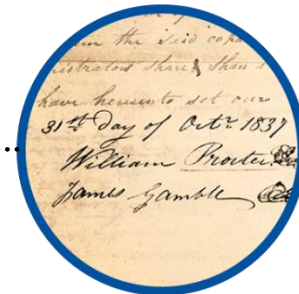 in the said copa
nistrators share & shan s
have hereunto set our
31st Day of Octr 1837
William Procter
James Gamble